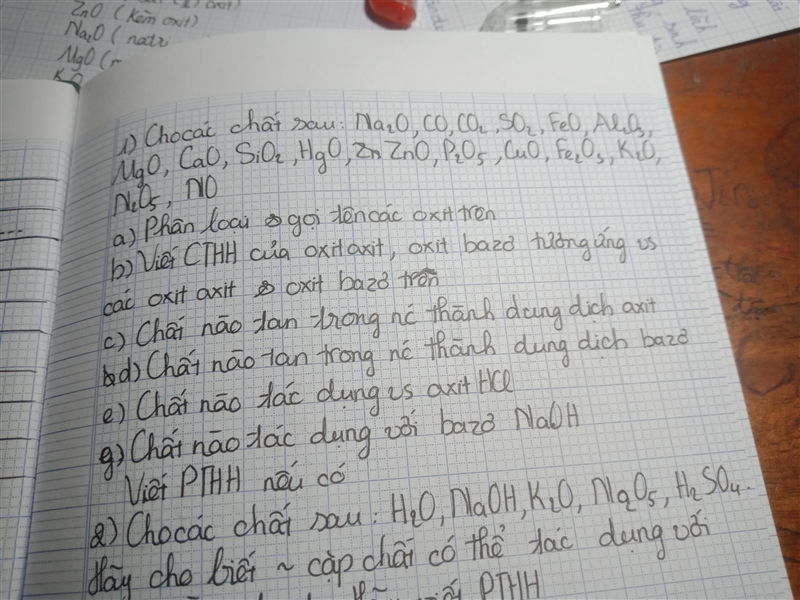 ZnO (Kẽm oxit)
Na₂O (natri
MgO (
1) Cho các chất sau: Na₂O, CO, CO₂, SO₂, FeO, Al₂O₃,
MgO, CaO, SiO₂, HgO, Zn ZnO, P₂O₅, CuO, Fe₂O₃, K₂O,
N₂O₅, NO
a) Phân loại & gọi tên các oxit trên
b) Viết CTHH của oxit axit, oxit bazơ tương ứng vs
các oxit axit & oxit bazơ trên
c) Chất nào tan trong nc thành dung dịch axit
d) Chất nào tan trong nc thành dung dịch bazơ
e) Chất nào tác dụng vs axit HCl
g) Chất nào tác dụng với bazơ NaOH
Viết PTHH nếu có
2) Cho các chất sau: H₂O, NaOH, K₂O, N₂O₅, H₂SO₄.
Hãy cho biết ~ cặp chất có thể tác dụng với
PTHH